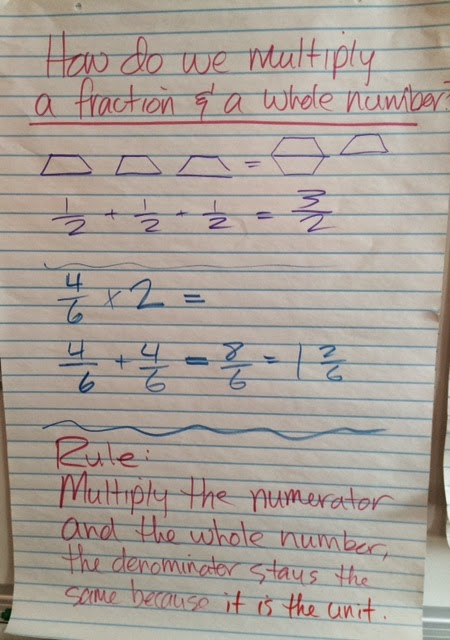 How do we multiply
a fraction & a whole number?
=
1/2 + 1/2 + 1/2 = 3/2
4/6 x 2 =
4/6 + 4/6 = 8/6 = 1 2/6
Rule:
Multiply the numerator
and the whole number,
the denominator stays the
same because it is the unit.